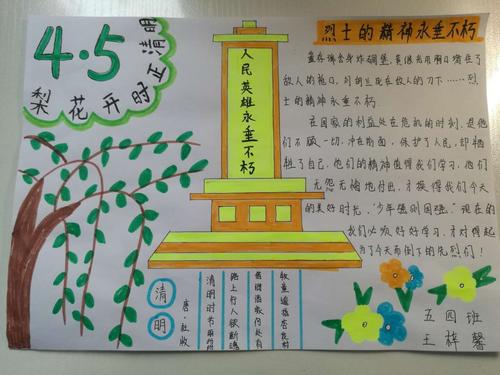 4·5
清明
梨花开时正
人民英雄永垂不朽
烈士的精神永垂不朽
董存瑞舍身炸碉堡，黄继光用胸口堵住了
敌人的枪口，刘胡兰死在敌人的刀下……烈
士的精神永垂不朽。
在国家的利益处在危机的时刻，是他
们不顾一切，冲在前面，保护了人民，却牺
牲了自己，他们的精神值得我们学习，他们
无怨无悔地付出，才换得我们今天
的美好时光，"少年强则国强"，现在的
我们必须好好学习，才对得起
为了今天而倒下的先烈们！
清明
唐·杜牧
清明时节雨纷纷
路上行人欲断魂
借问酒家何处有
牧童遥指杏花村
五四班
王梓馨